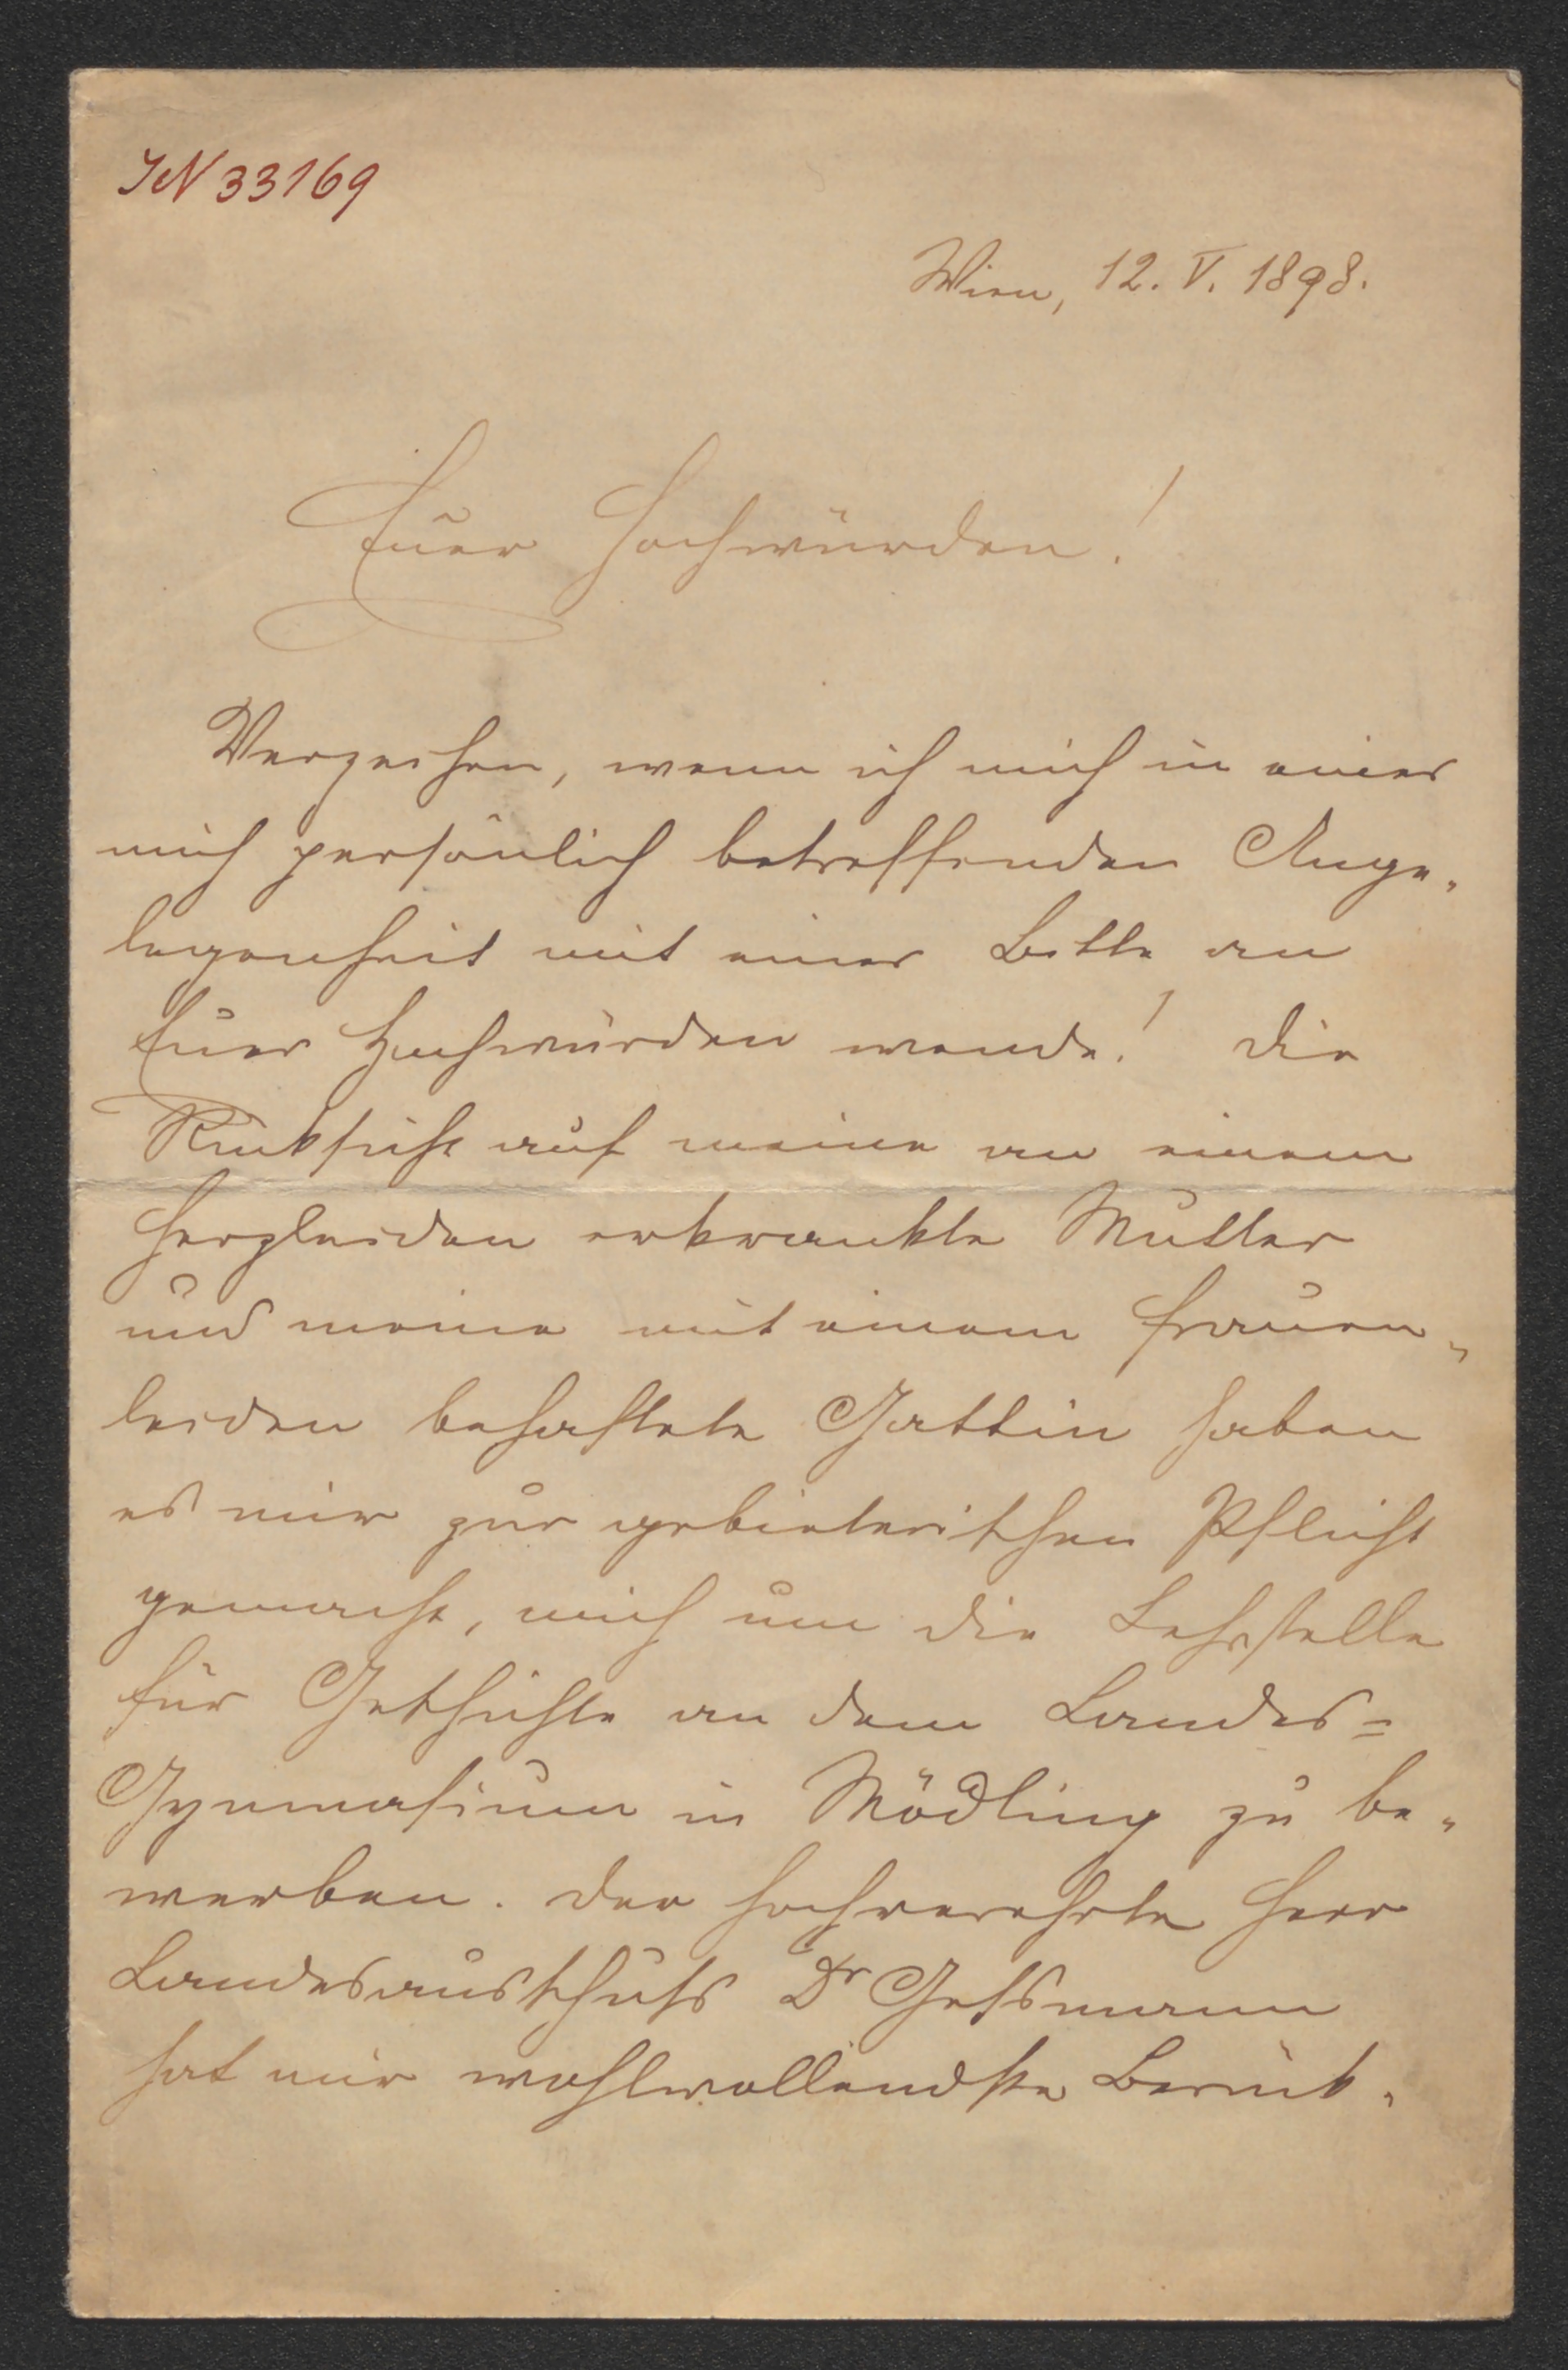 IN 33169
Wien, 12. V. 1898.
Euer Hochwürden!
Verzeihen, wenn ich mich in einer
mich persönlich betreffenden Ange-
legenheit mit einer Bitte an
Euer Hochwürden wende! Die
Rücksicht auf meine an einem
Herzleiden erkrankte Mutter
und meine mit einem Frauen-
leiden behaftete Gattin haben
es mir zur gebieterischen Pflicht
gemacht, mich um die Lehrstelle
für Geschichte an dem Landes-
Gymnasium in Mödling zu be-
werben. Der hochverehrte Herr
Landesausschuss Dr Gessmann
hat mir wohlwollendste Berück-